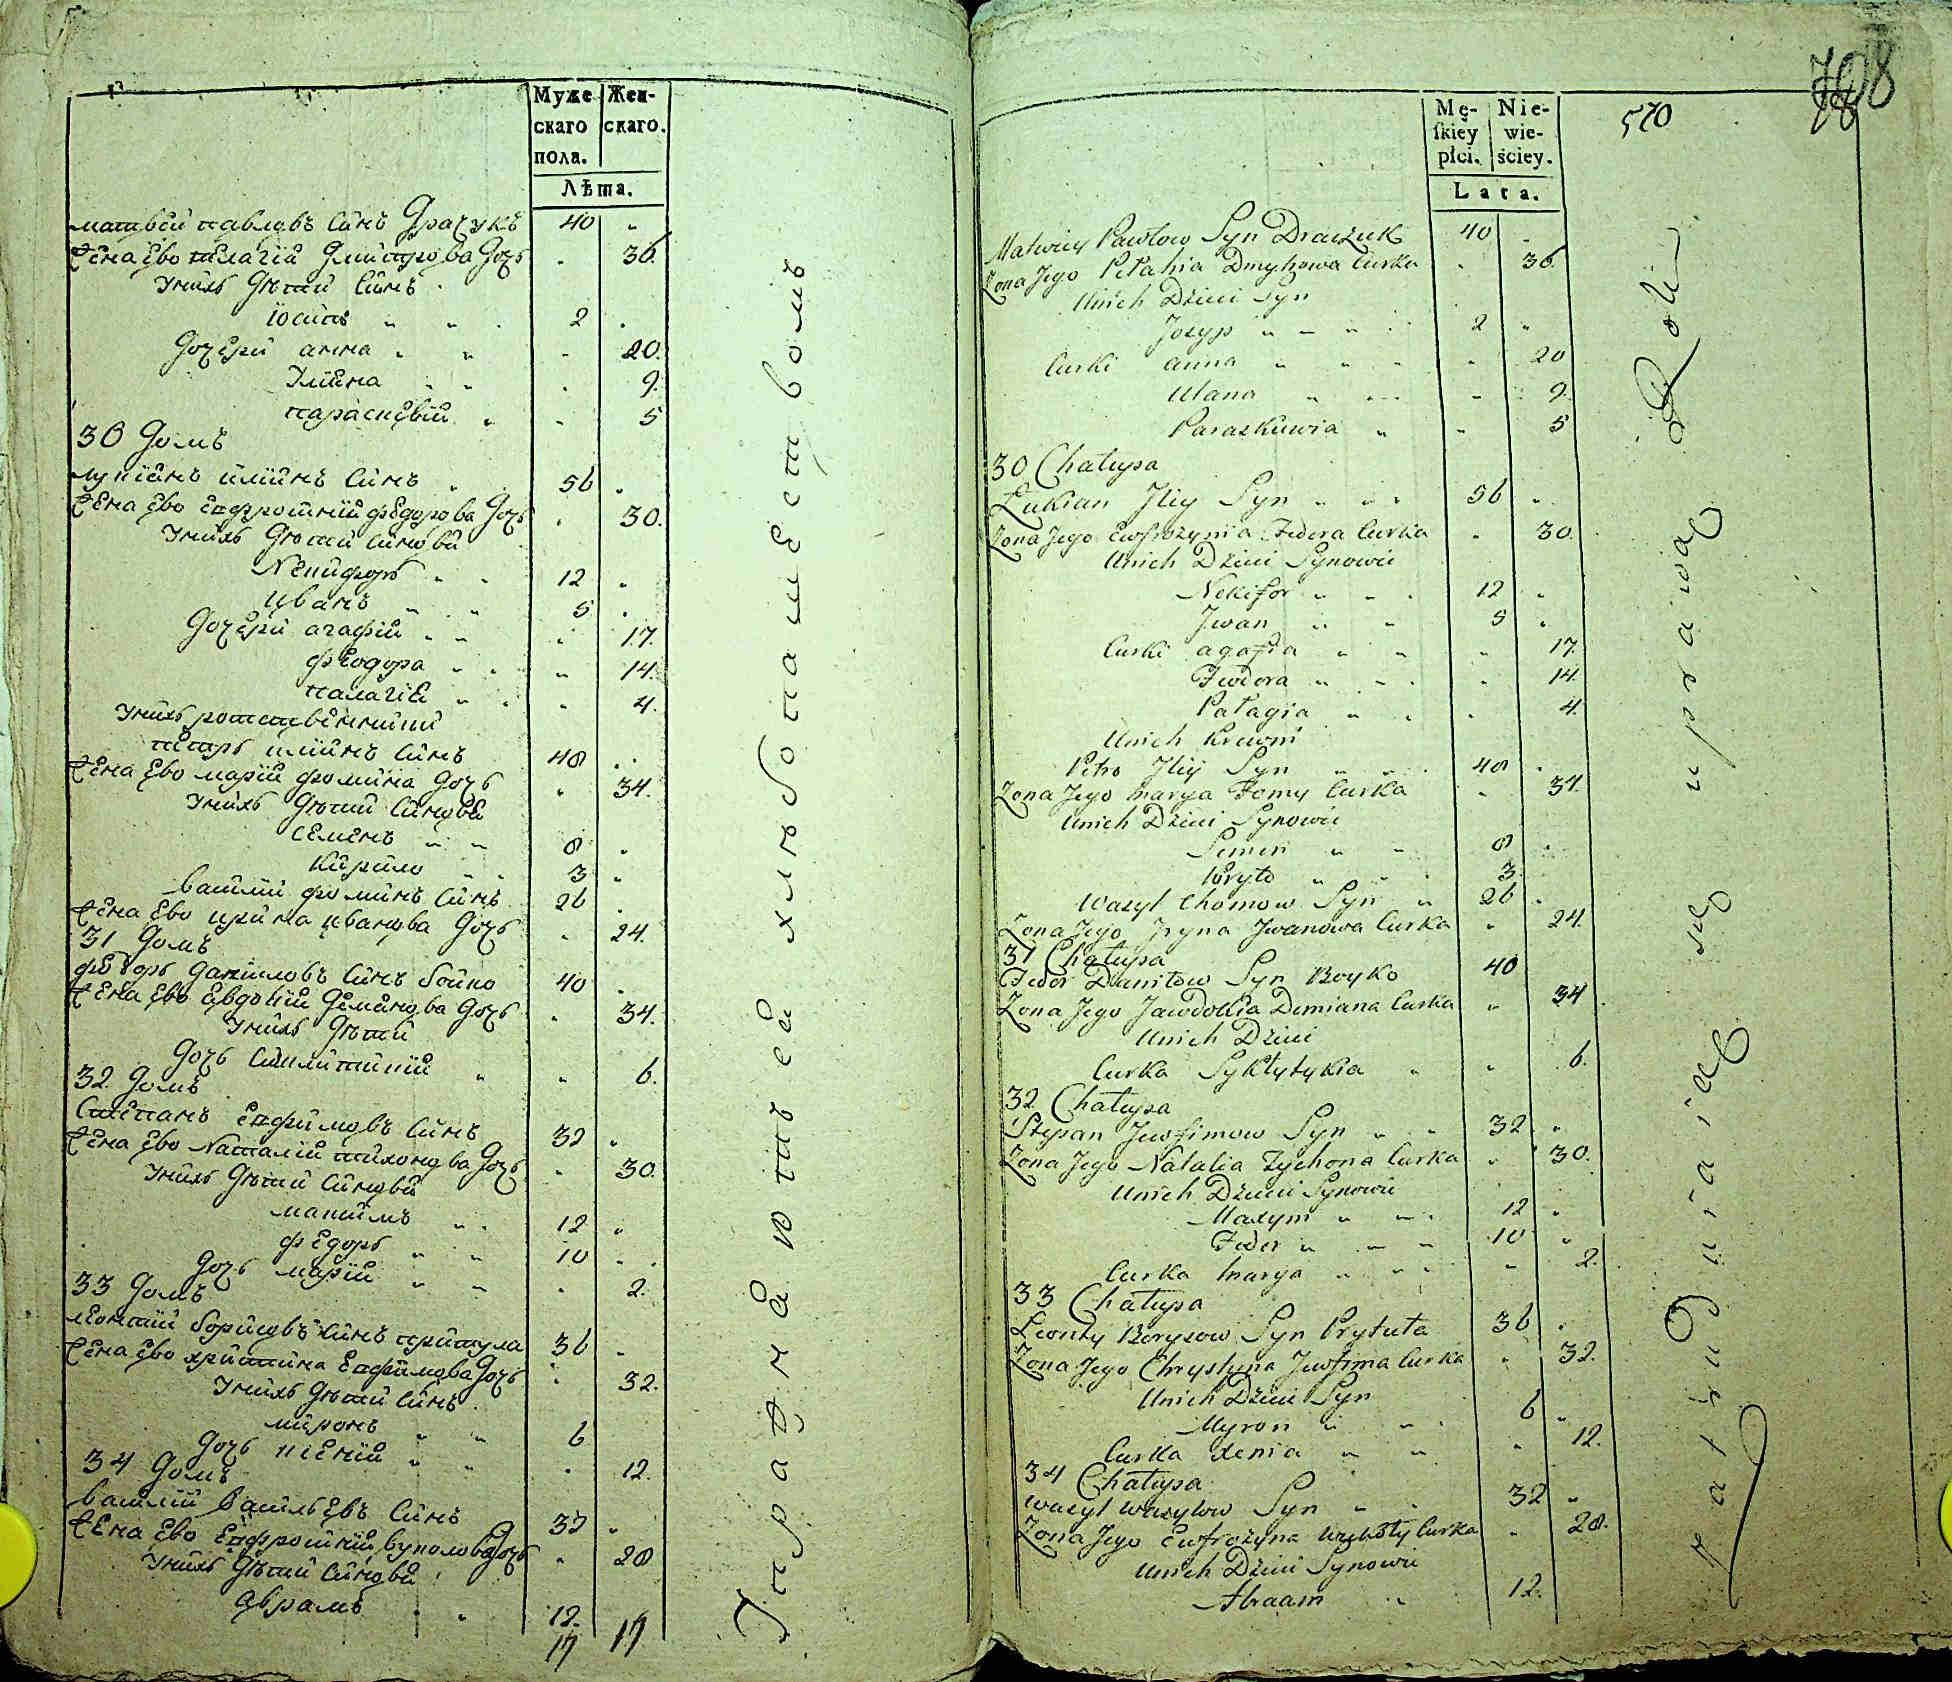 Муже-
скаго
пола.
Жен-
скаго.
Лѣта.
матвѣй павловъ синъ Драчукъ 40 "
жена ево пелагій Дмитрова Дочь " 36.
унихъ Дѣтий Синъ
иосипъ " " 2 "
Дочери анна " " " 20.
улияна " " " 9.
парасцевій " " 5
30 Домъ
лукіянъ илиинъ Синъ " 56 "
жена ево евфросиній федорова Дочь " 30.
унихъ Дѣтий Синови
Никифоръ " " 12 "
иванъ " " 5 "
Дочери агафій " " " 17.
феодора " " " 14.
палагіе " " " 4.
унихъ
петръ илиинъ Синъ 48 "
жена ево марій фомина Дочь " 34.
унихъ Дѣтий Синови
семенъ " " 8 "
кирило " " 3 "
василий фоминъ Синъ 26 "
жена ево ирина иванова Дочь " 24.
31 Домъ
федоръ даниловъ Синъ бойко 40 "
жена ево евдокій Деминова Дочь " 34.
унихъ Дѣтий
Дочь " " 6.
32 Домъ
Степанъ евфимовъ Синъ 32 "
жена ево Наталій тихонова Дочь " 30.
унихъ Дѣтий Синови
максимъ " " 12 "
федоръ " " 10 "
Дочь марій " " " 2.
33 Домъ
леонтий борисовъ синъ притула 36 "
жена ево христина евфимова Дочь " 32.
унихъ Дѣтий Синъ
миронъ " " 6
Дочь ксений " " " 12.
34 Домъ
василий васильевъ Синъ 32 "
жена ево евфросиний вуколова дочь " 28
унихъ Дѣтий Синови
аврамъ " " 12.
17 17
упражняютъ ся хлѣбопашествомъ
708
570
Mę-
skiey
płci.
Nie-
wie-
ściey.
Lata.
Matwiey Pawłow Syn Draczuk 40 "
Zona Jego Pełahia Dmytrowa Curka " 36.
Unich Dzieci Syn
Josyp " " " 2 "
Curki anna " " " " 20
Ulana " " " 9.
Paraskiewia " " 5
30 Chałupa
Łukian Iliy Syn " " " 56 "
Zona Jego Ewfrozynia Fedora Curka " 30.
Unich Dzieci Synowie
Nekifor " " 12 "
Jwan " " 5 "
Curki agafia " " " 17.
Fedora " " " 14.
Pałagia " " " 4.
Unich Krewni
Petro Iliy Syn " " 48 "
Zona Jego Marya Fomy Curka " 34.
Unich Dzieci Synowie
Semen " " 8 "
Kiryło " " 3.
Wasyl Chomow Syn " 26 "
Zona Jego Jryna Jwanowa Curka " 24.
31 Chałupa
Fedor Daniłow Syn Boyko 40
Zona Jego Jawdokia Demiana Curka " 34
Unich Dzieci
Curka Sykłytykia " " 6.
32 Chałupa
Stepan Jewfimow Syn " " 32 "
Zona Jego Natalia Tychona Curka " 30.
Unich Dzieci Synowie
Maxym " " 12 "
Fedor " " " 10 "
Curka Marya " " " 2.
33 Chałupa
Leonty Borysow Syn Prytuła 36 "
Zona Jego Chrystyna Jewfima Curka " 32.
Unich Dzieci Syn
Myron " " 6 "
Curka Xenia " " " 12.
34 Chałupa
Wasyl Wasylow Syn " " 32 "
Zona Jego Ewfrozyna Curka " 28.
Unich Dzieci Synowie
Abraam " 12.
Zatrudniaią się uprawą Roli